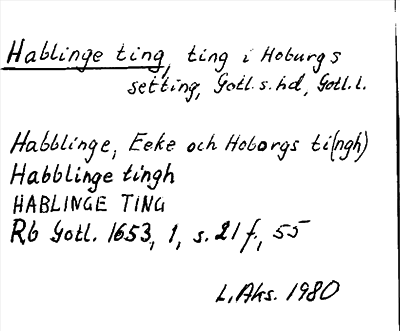 Hablinge ting, ting i Hoburgs
setting, Gotl. s. hd, Gotl. l.
Habblinge, Eeke och Hoborgs ti(ngh)
Habblinge tingh
HABLINGE TING
Rb Gotl. 1653, 1, s. 21 f, 55
L. Aks. 1980